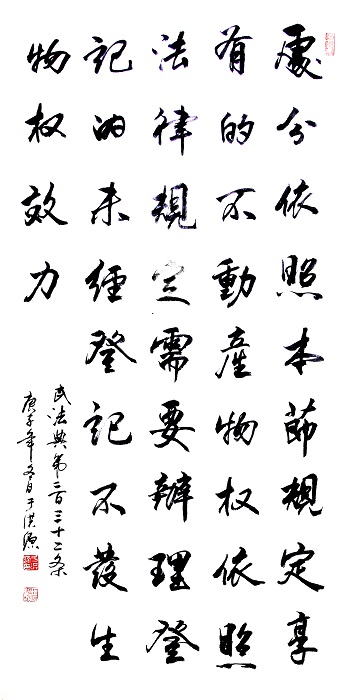 處分依照本節規定享
有的不動產物权依照
法律規定需要辦理登
記的未經登記不發生
物权效力
民法典第二百三十二条
庚子年冬月于洪源